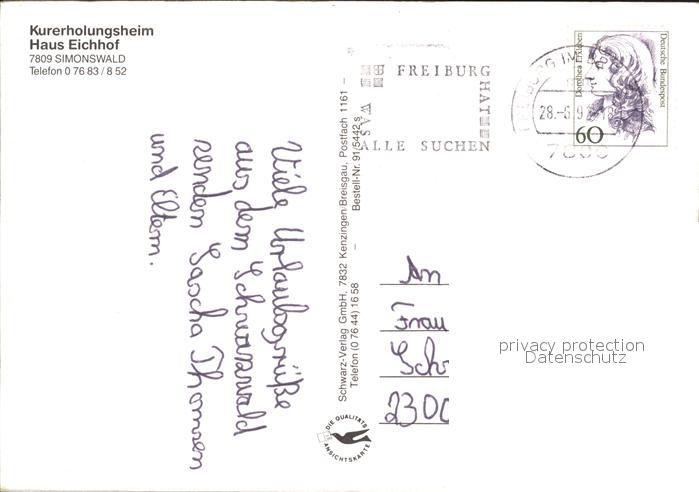 Kurerholungsheim
Haus Eichhof
7809 SIMONSWALD
Telefon 0 76 83 / 8 52
Viele Urlaubsgrüße
aus dem Schwarzwald
senden Sascha Thomsen
und Eltern.
Schwarz-Verlag GmbH, 7832 Kenzingen/Breisgau, Postfach 1161 –
Telefon (0 76 44) 16 58 – Bestell-Nr. 91/5442 s
DIE QUALITÄTS
ANSICHTSKARTE
FREIBURG
HAT
WAS
ALLE SUCHEN
28.-6.9
Deutsche Bundespost
60
An
Frau
Sch
2300
privacy protection
Datenschutz